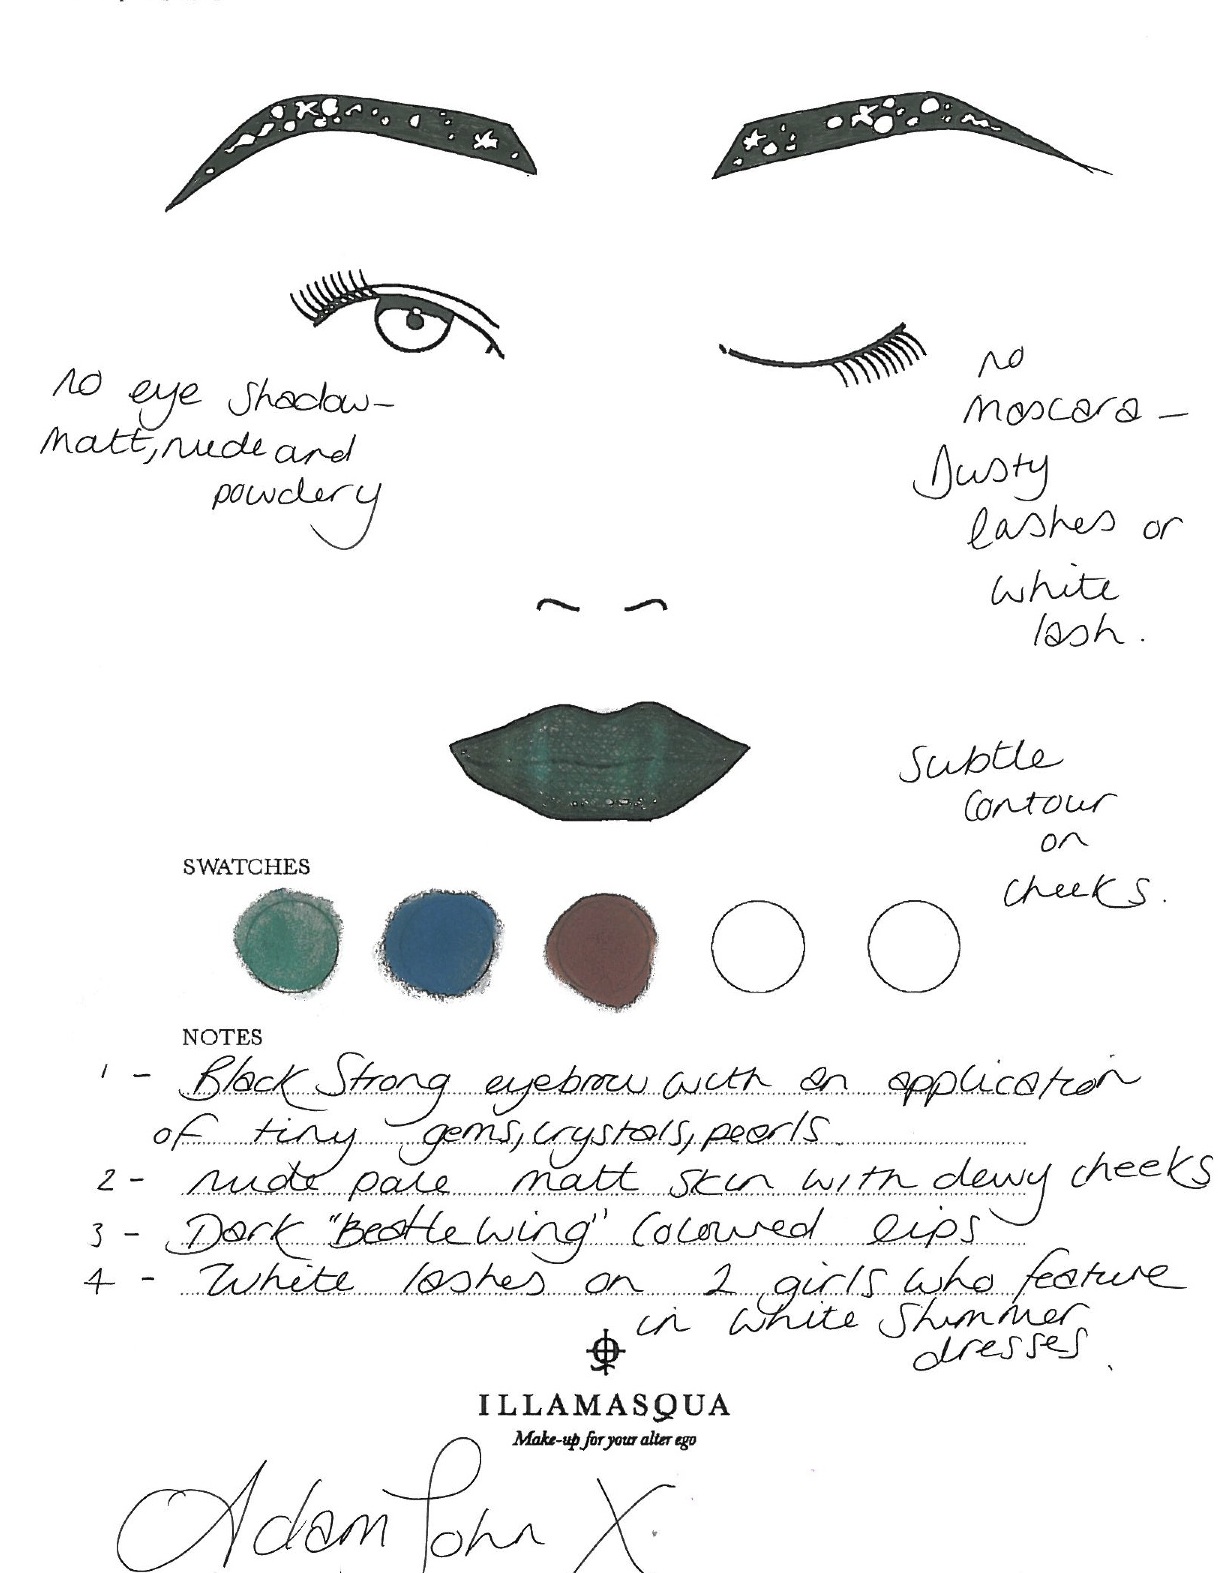 no eye shadow-
matt, nude and
powdery
no
mascara -
Dusty
lashes or
white
lash.
subtle
contour
on
cheeks.
SWATCHES
NOTES
1 - Black Strong eyebrow with an application
of tiny gems, crystals, pearls.
2 - nude pale matt skin with dewy cheeks
3 - Dark "Beatle wing" coloured lips
4 - White lashes on 2 girls who feature
in white shimmer
dresses.
ILLAMASQUA
Make-up for your alter ego
Adam John X.